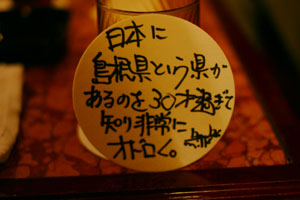 日本に
島根県という県が
あるのを30才過ぎて
知り非常に
オドロく。